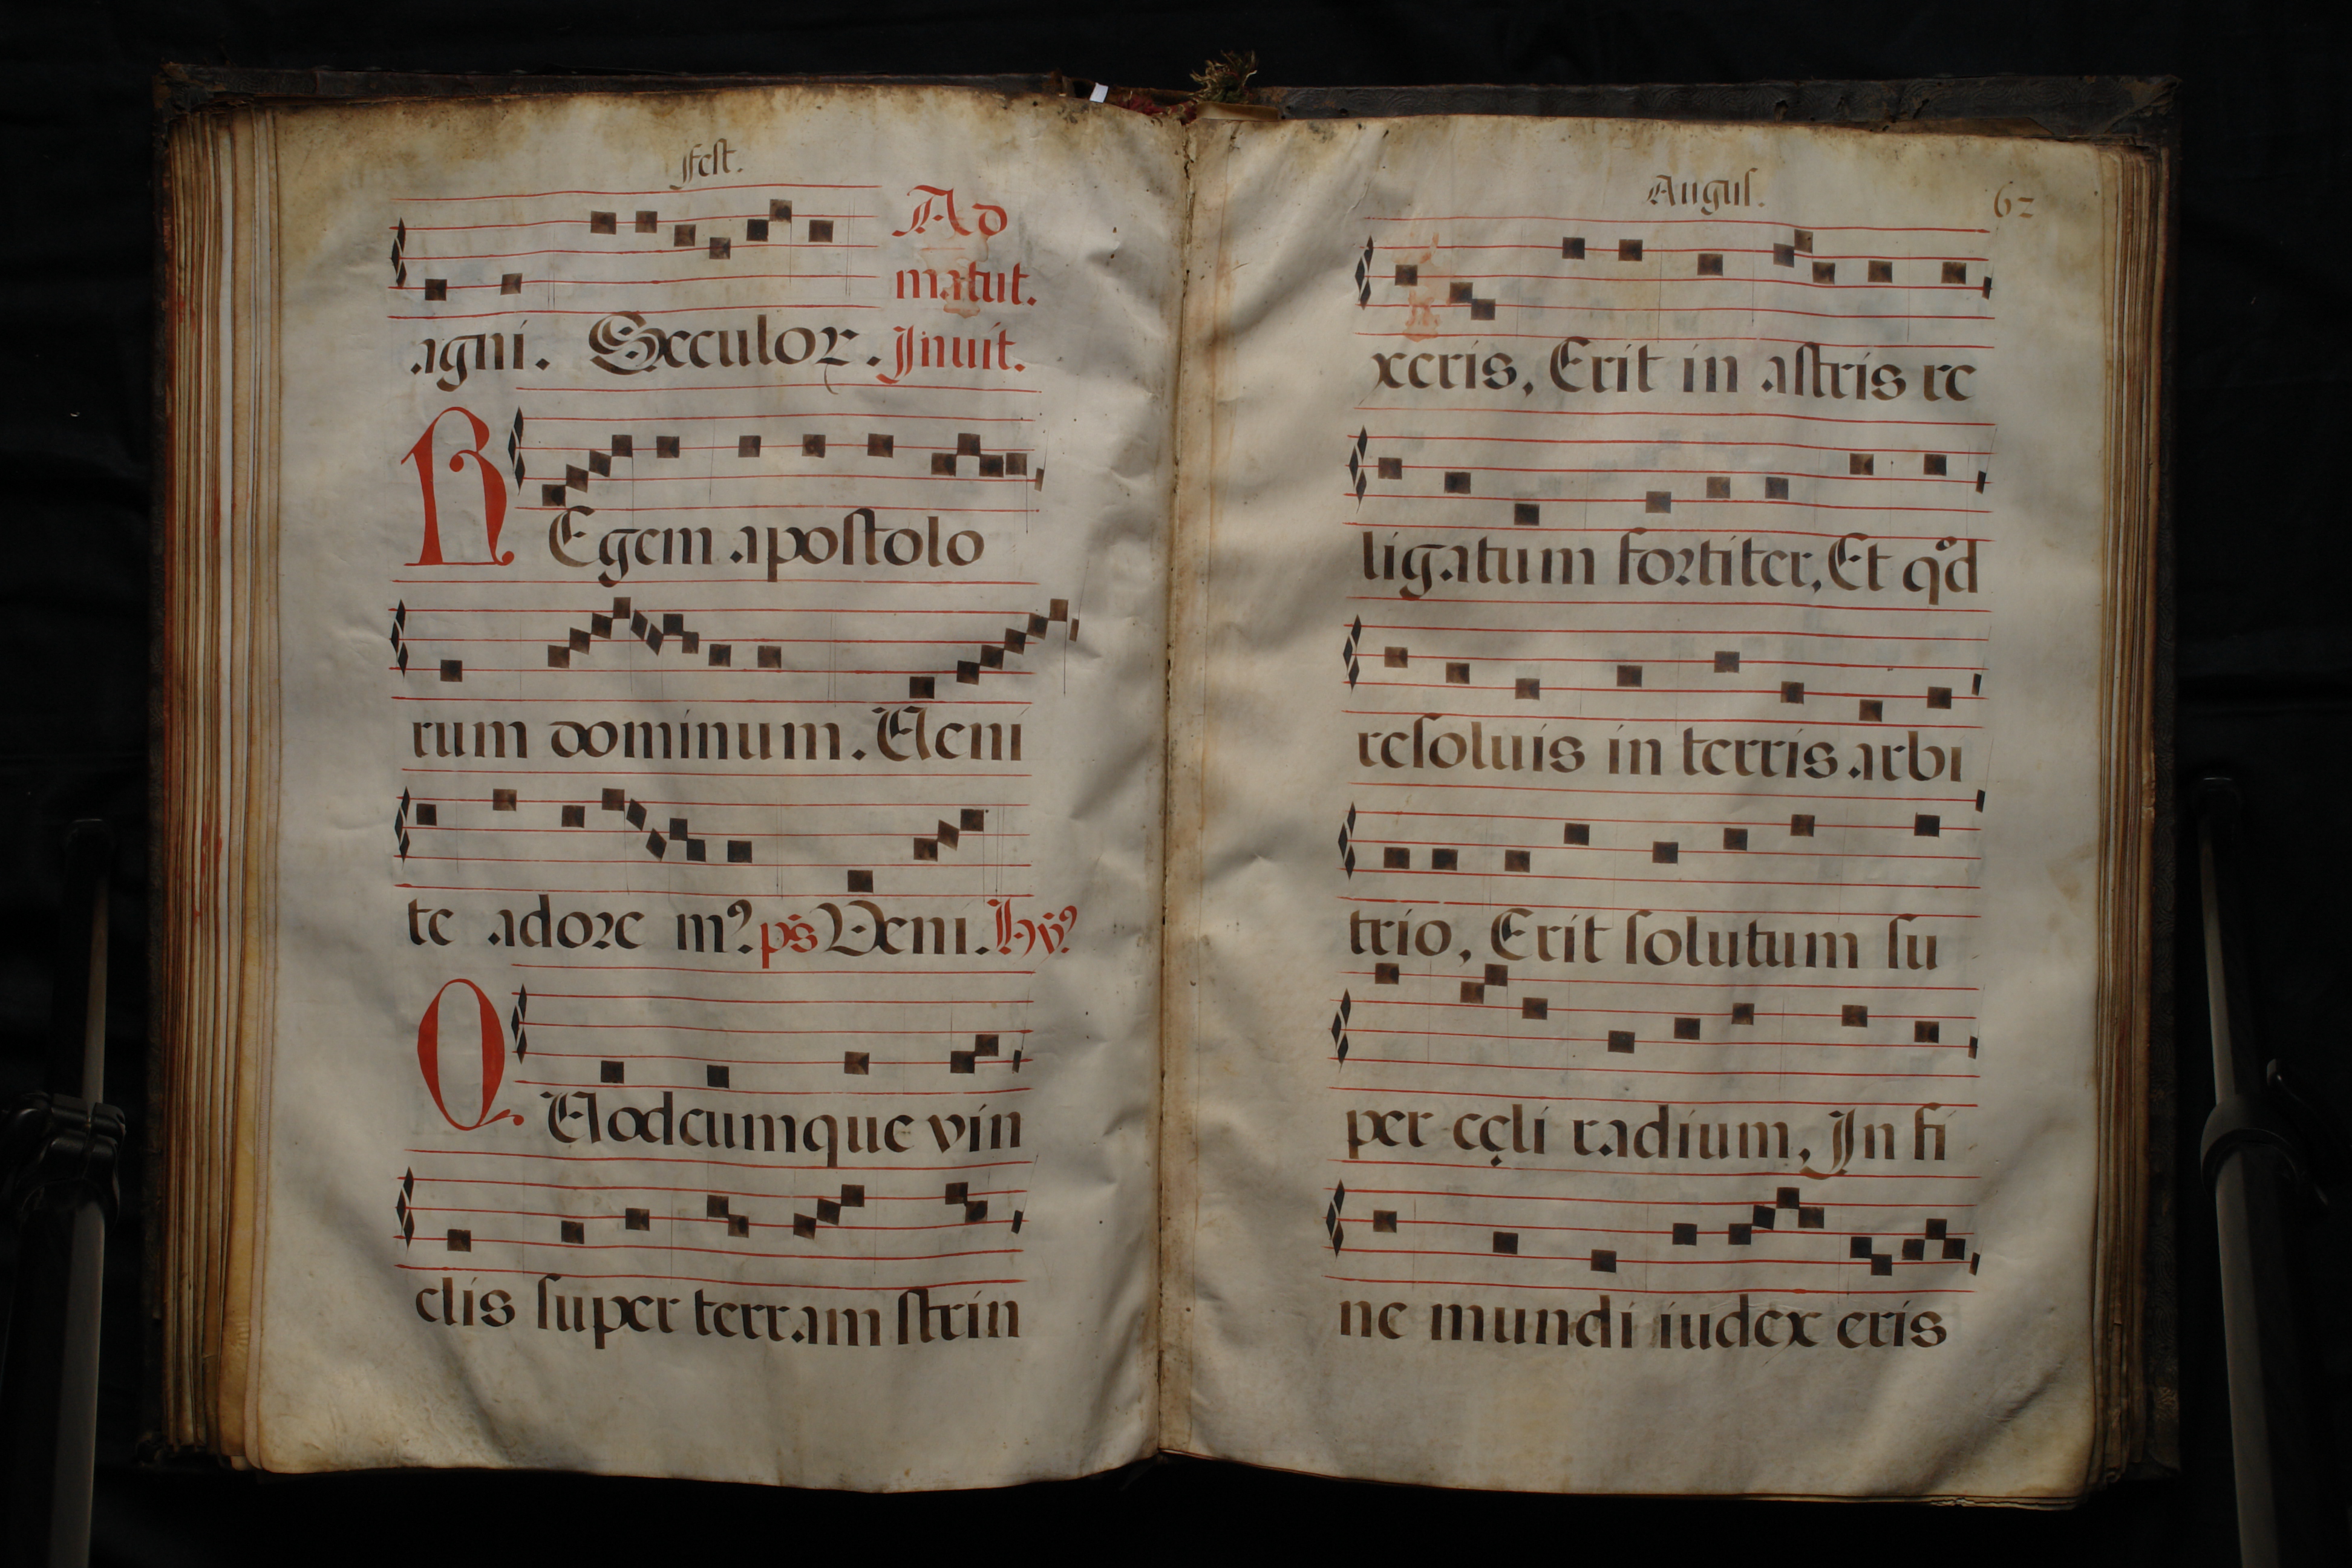 Fest.
Ad
matut.
agni. Sęculoꝝ. Inuit.
REgem apostolo
rum dominum. Ueni
te adore m⁹. ps̃ Veni. Hỹ⁹
QUodcumque vin
clis super terram strin
Augus. 62
xeris, Erit in astris re
ligatum fortiter, Et qͦd
resoluis in terris arbi
trio, Erit solutum su
per cęli radium, In fi
ne mundi iudex eris